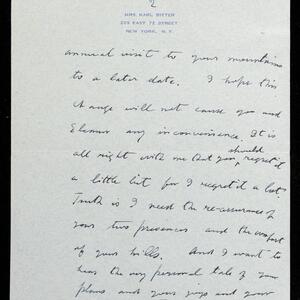 2
MRS. KARL BITTER
225 EAST 72 STREET
NEW YORK, N.Y.
annual visit to your mountains
to a later date. I hope this
change will not cause you and
Eleanor any inconvenience. It is
all right with me that you should regret it
a little bit for I regret it a lot.
Truth is I need the re-assurance of
your two presences and the comfort
of your hills. And I want to
hear the very personal tale of your
plans and your joys and your